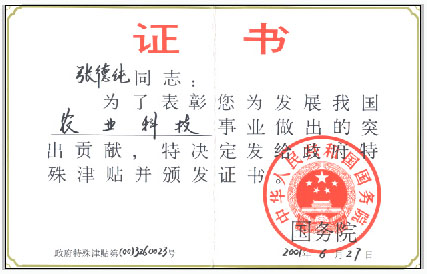 证 书
张德纯同志：
为了表彰您为发展我国
农业科技事业做出的突
出贡献，特决定发给政府特
殊津贴并颁发证书。
中华人民共和国国务院
国务院
2001年6月27日
政府特殊津贴第(00)3260023号